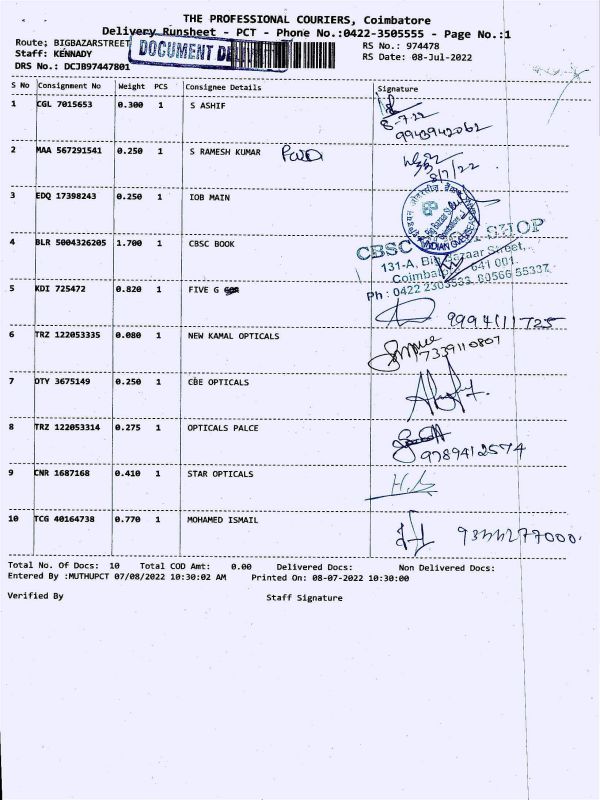 THE PROFESSIONAL COURIERS, Coimbatore
Delivery Runsheet - PCT - Phone No.:0422-3505555 - Page No.:1
Route: BIGBAZARSTREET
RS No.: 974478
Staff: KENNADY
DOCUMENT
RS Date: 08-Jul-2022
DRS No.: DCJB97447801
S No Consignment No Weight PCS Consignee Details Signature
1 CGL 7015653 0.300 1 S ASHIF
8-7-22
9943942062
2 MAA 567291541 0.250 1 S RAMESH KUMAR
8/7/22
3 EDQ 17398243 0.250 1 IOB MAIN
4 BLR 5004326205 1.700 1 CBSC BOOK
CBSC SHOP
131-A, Big Bazaar Street,
Coimbatore 641 001.
Ph : 0422 2303533, 80566 55337
5 KDI 725472 0.820 1 FIVE G
9994111725
6 TRZ 122053335 0.080 1 NEW KAMAL OPTICALS
7339110807
7 DTY 3675149 0.250 1 CBE OPTICALS
8 TRZ 122053314 0.275 1 OPTICALS PALCE
9789412574
9 CNR 1687168 0.410 1 STAR OPTICALS
10 TCG 40164738 0.770 1 MOHAMED ISMAIL
Total No. Of Docs: 10 Total COD Amt: 0.00 Delivered Docs: Non Delivered Docs:
Entered By :MUTHUPCT 07/08/2022 10:30:02 AM Printed On: 08-07-2022 10:30:00
Verified By Staff Signature